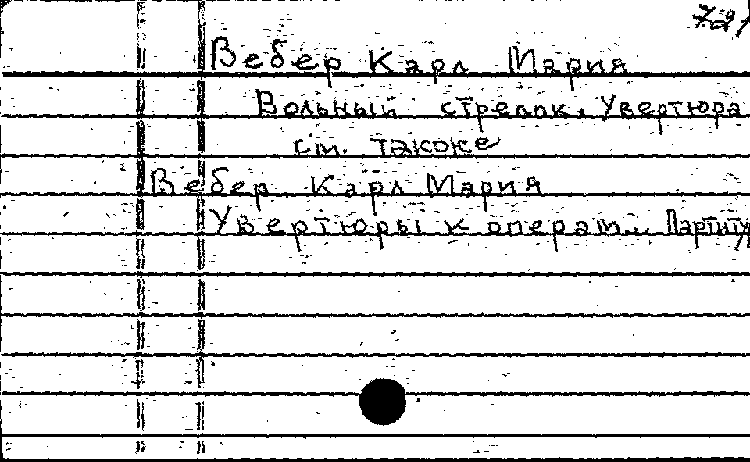 721
Вебер Карл Мария
Вольный стрелок. Увертюра
см. также
Вебер Карл Мария
Увертюры к операм.. Партиту